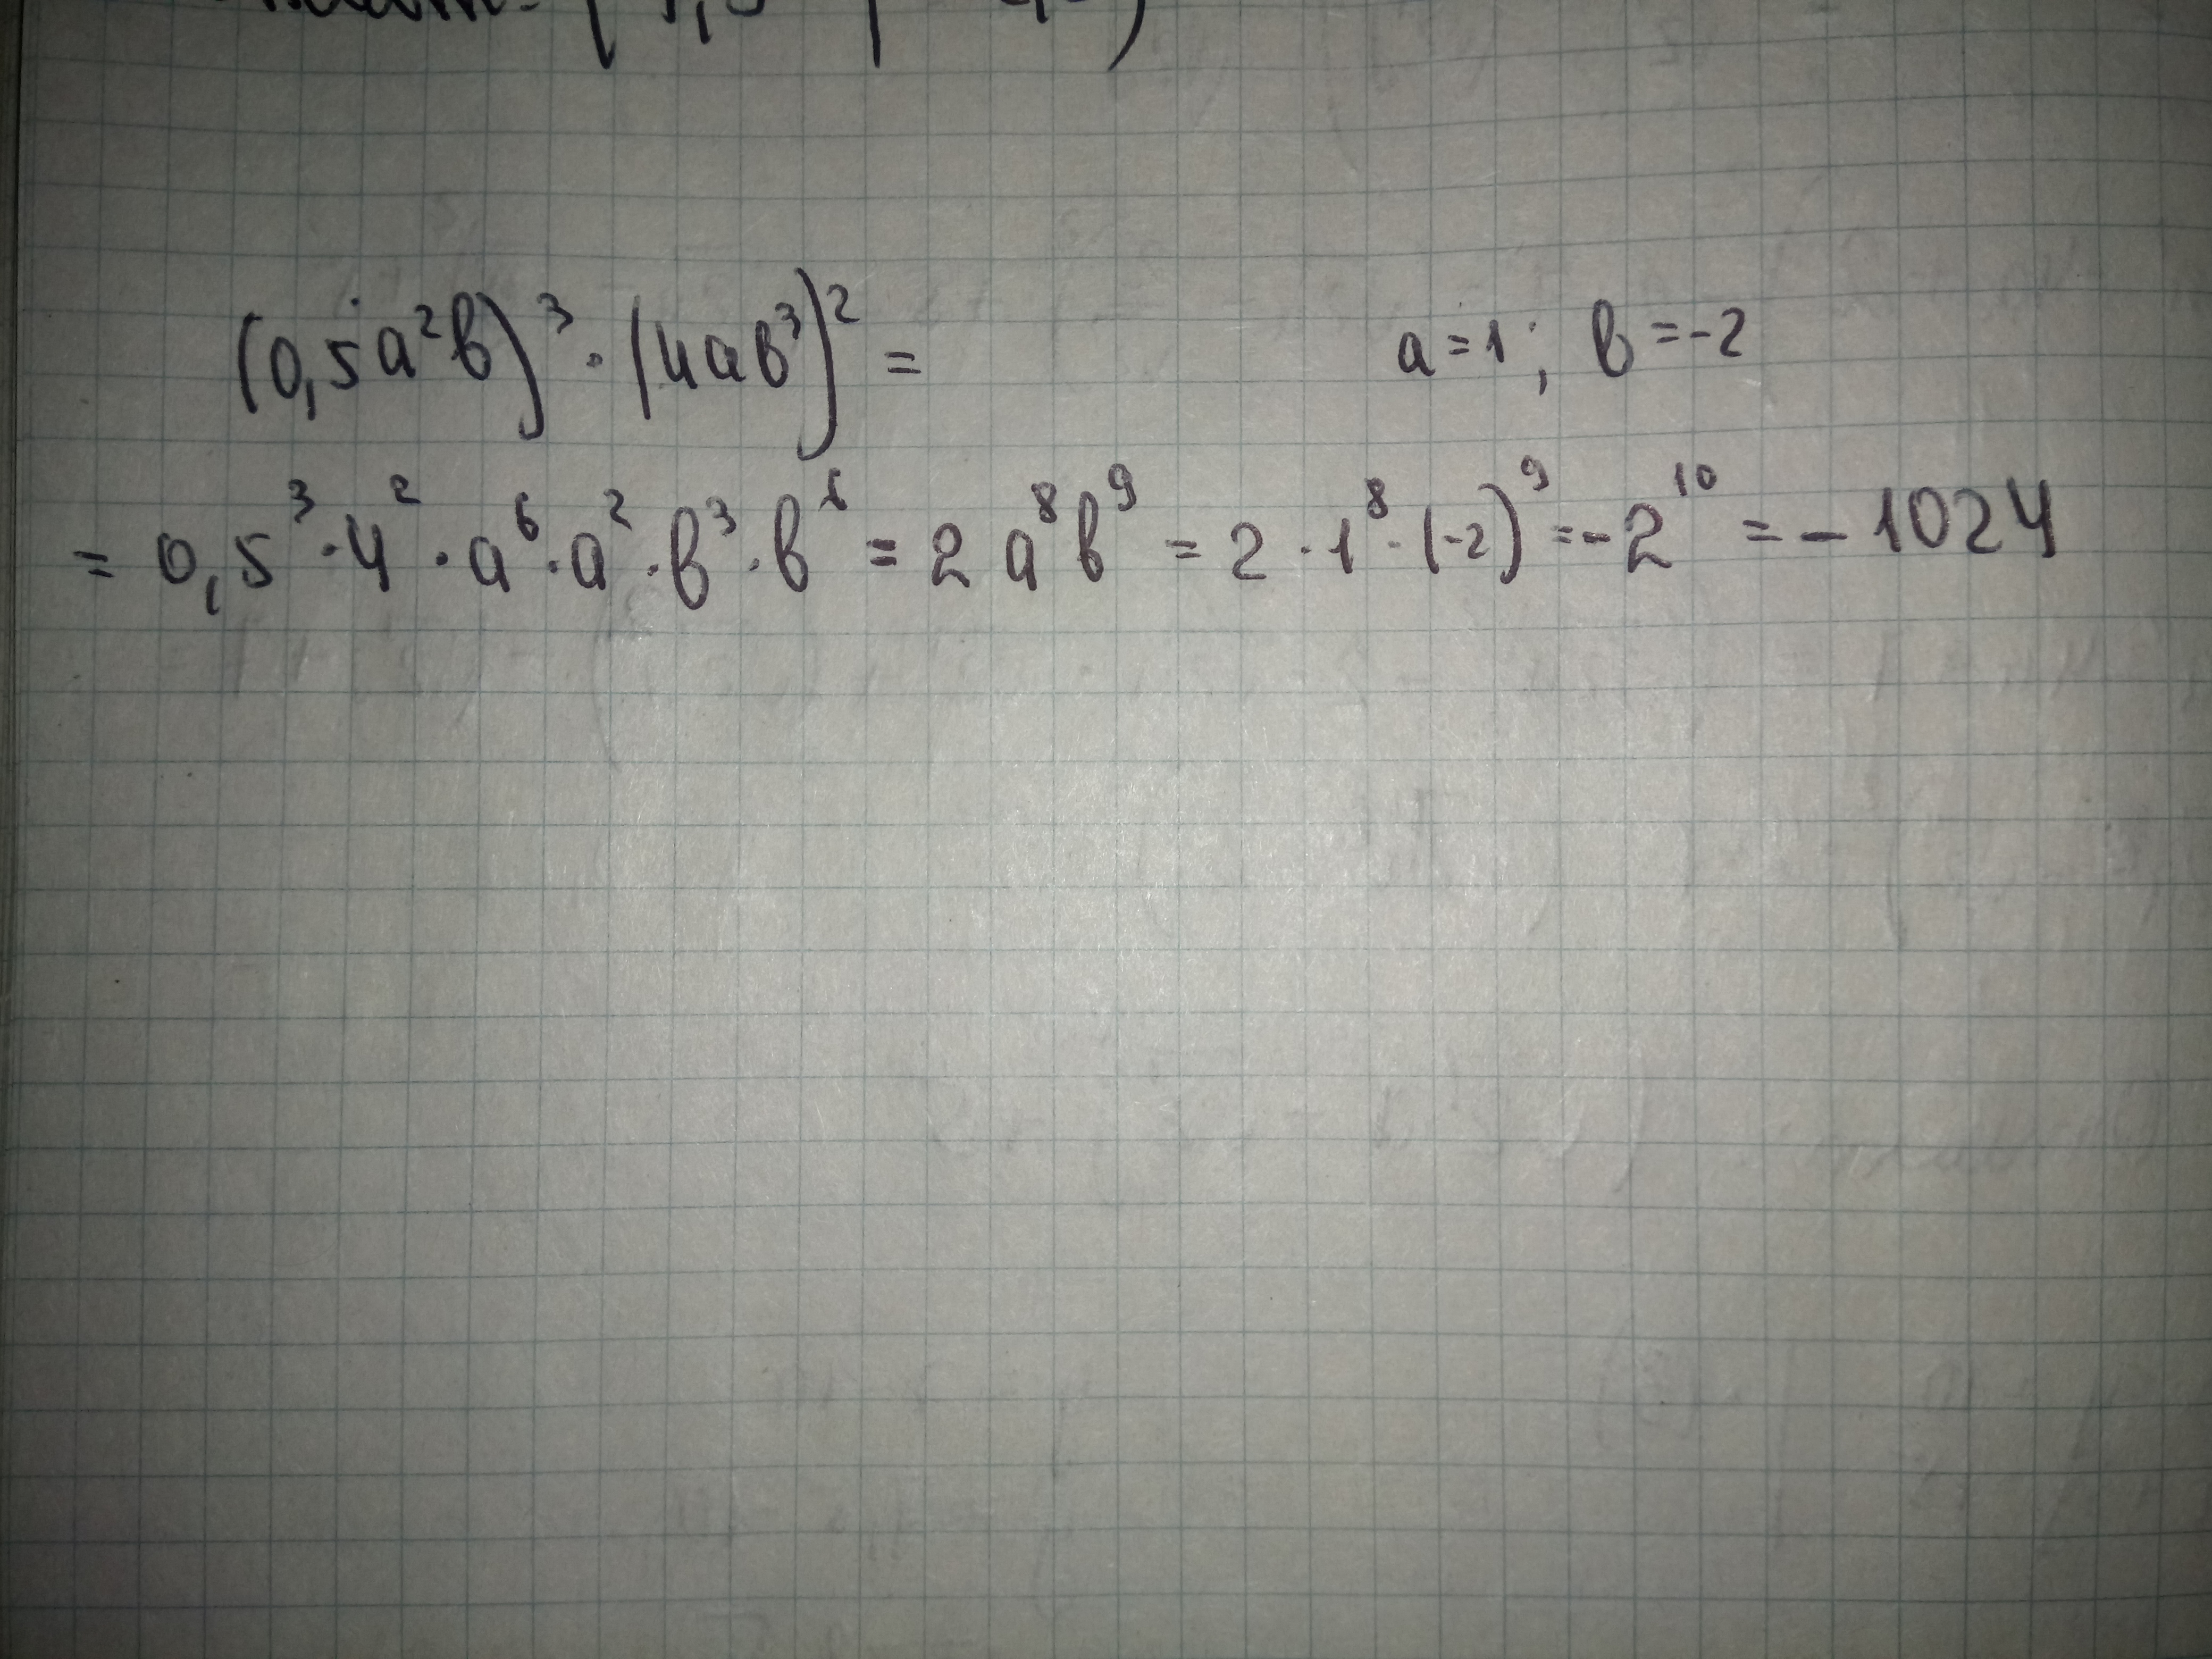 (0,5a²b)³ · (4ab³)² = a = 1; b = -2
= 0,5³ · 4² · a⁶ · a² · b³ · b⁶ = 2a⁸b⁹ = 2 · 1⁸ · (-2)⁹ = -2¹⁰ = - 1024